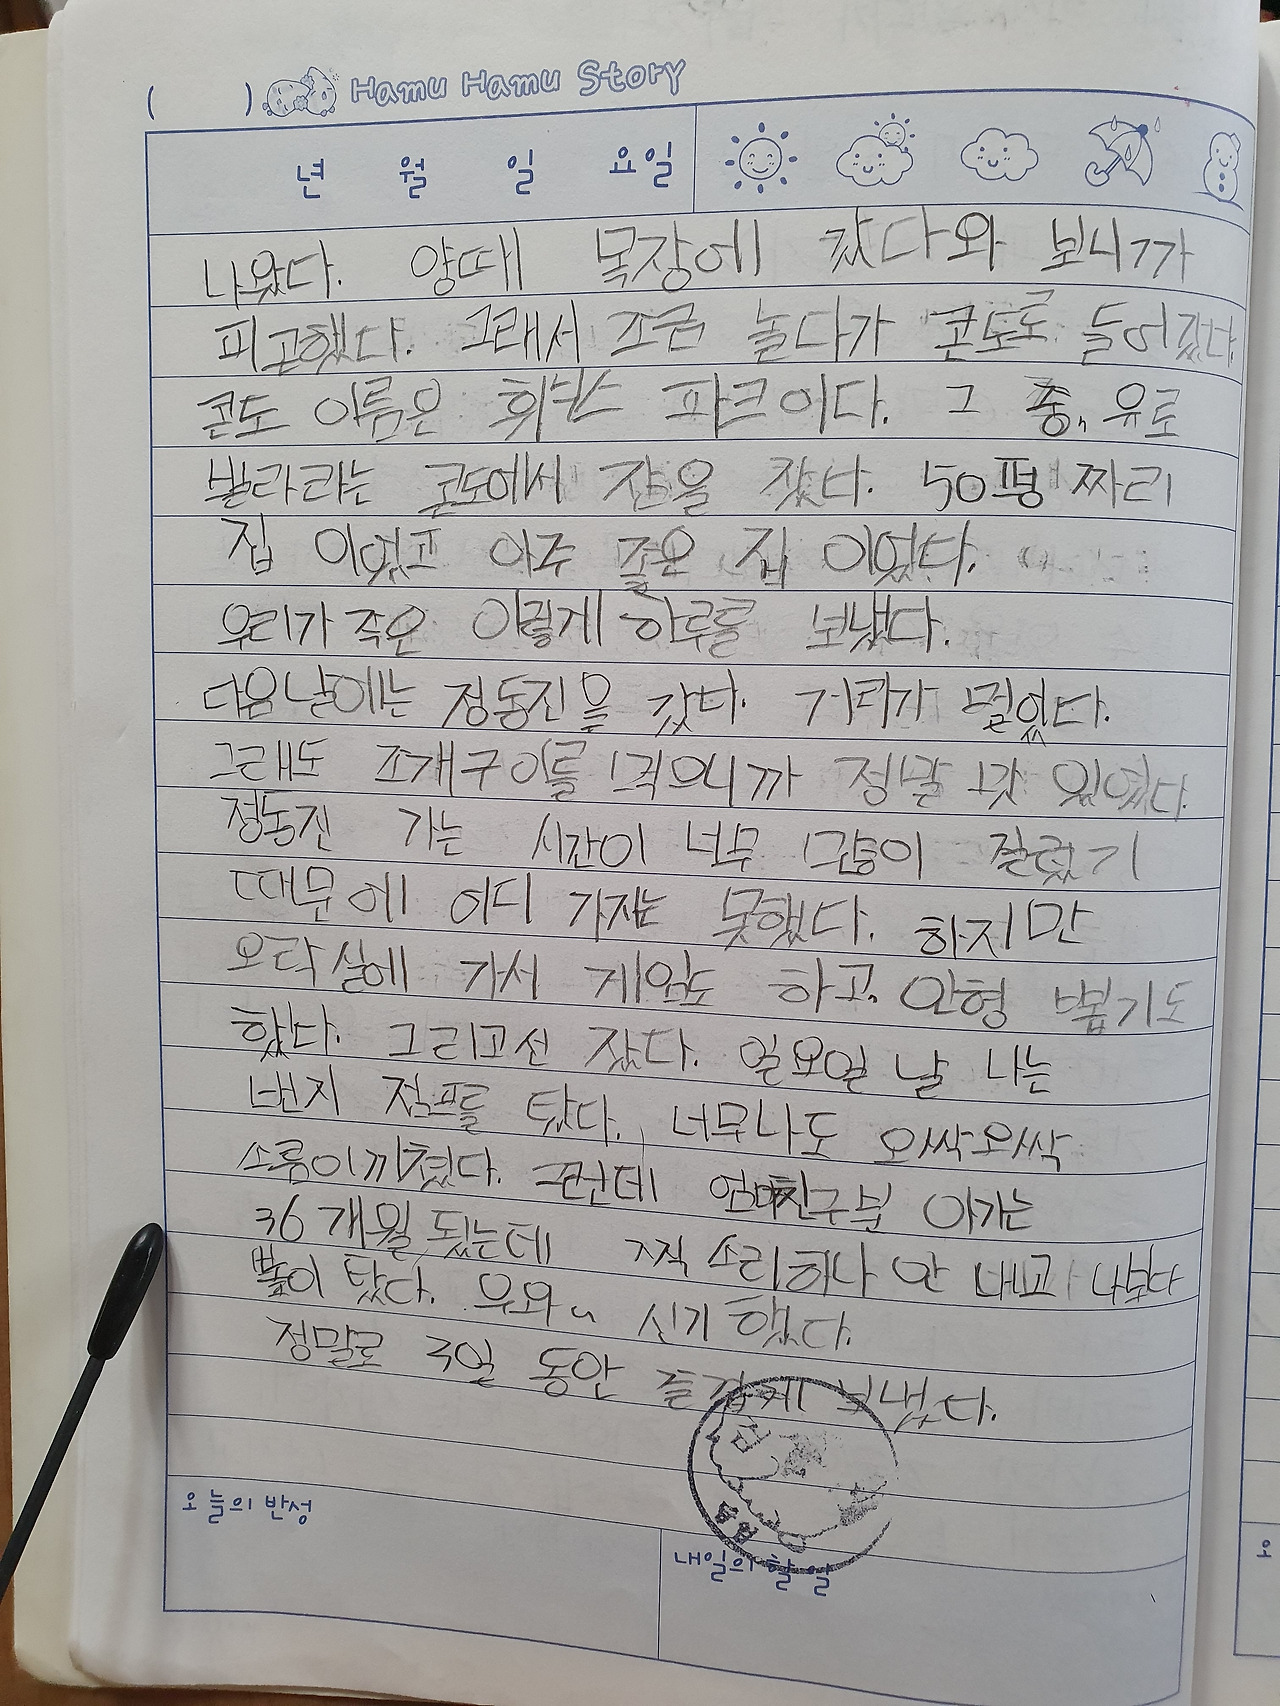 ( ) Hamu Hamu Story
년 월 일 요일
나왔다. 양떼 목장에 갔다와 보니까
피곤했다. 그래서 조금 놀다가 콘도로 들어갔다.
콘도 이름은 휘닉스 파크이다. 그 중, 유로
빌라라는 콘도에서 잠을 잤다. 50평 짜리
집 이었고 아주 좋은 집 이었다.
우리가 족은 이렇게 하루를 보냈다.
다음날에는 정동진을 갔다. 거리가 멀었다.
그래도 조개구이를 먹으니까 정말 맛 있었다.
정동진 가는 시간이 너무 많이 걸렸기
때무에 어디 가지는 못했다. 하지만
오락실에 가서 게임도 하고, 인형 뽑기도
했다. 그리고선 잤다. 일요일 날 나는
번지 점프를 탔다. 너무나도 오싹오싹
소름이끼쳤다. 그런데 엄마친구분 아가는
36개월 됬는데 찍 소리하나 안 내고 나보다
많이 탔다. 우와~ 신기 했다.
정말로 3일 동안 즐겁게 보냈다.
오늘의 반성
내일의 할 일
오